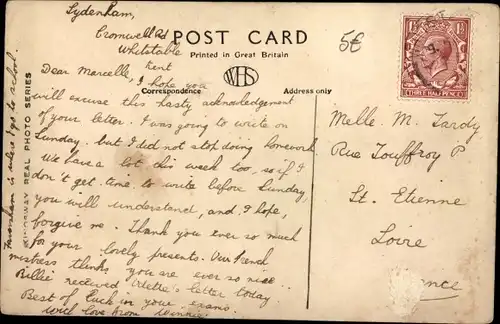 Sydenham,
Cromwell Rd
Whitstable
Kent
POST CARD
Printed in Great Britain
WHS
Correspondence
Address only
5€
THREE HALF PENCE
Dear Marcelle,
I hope you
will excuse this hasty acknowledgement
of your letter. I was going to write on
Sunday, but I did not stop doing homework.
We have a lot this week too, so if I
don't get time to write before Sunday,
you will understand, and, I hope,
forgive me. Thank you ever so much
for your lovely presents. Our French
mistress thinks you are ever so nice..
Billie received Arlette's letter today
Best of luck in your exams.
with love from Winnie.
Faversham is where I go to school.
KINGSWAY REAL PHOTO SERIES
Melle. M. Tardy
Rue Jouffroy P
St. Etienne
Loire
France